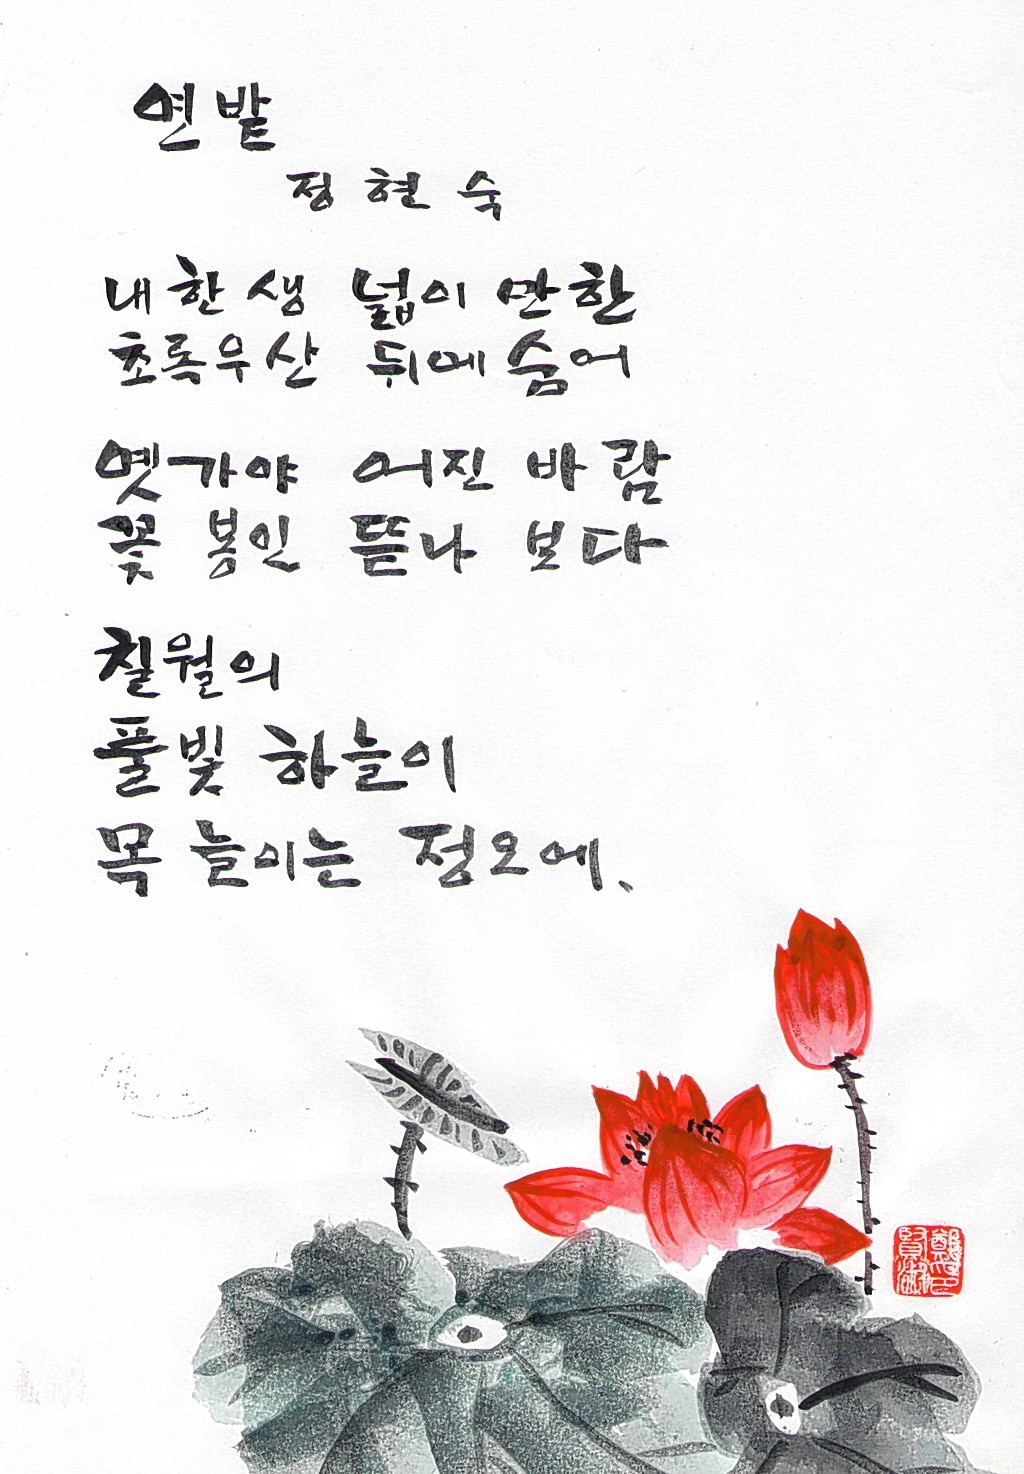 연밭
정현숙
내 한 생 넓이 만한
초록우산 뒤에 숨어
옛가야 어진 바람
꽃 봉인 뜯나 보다
칠월의
풀빛 하늘이
목 늘이는 정오에.